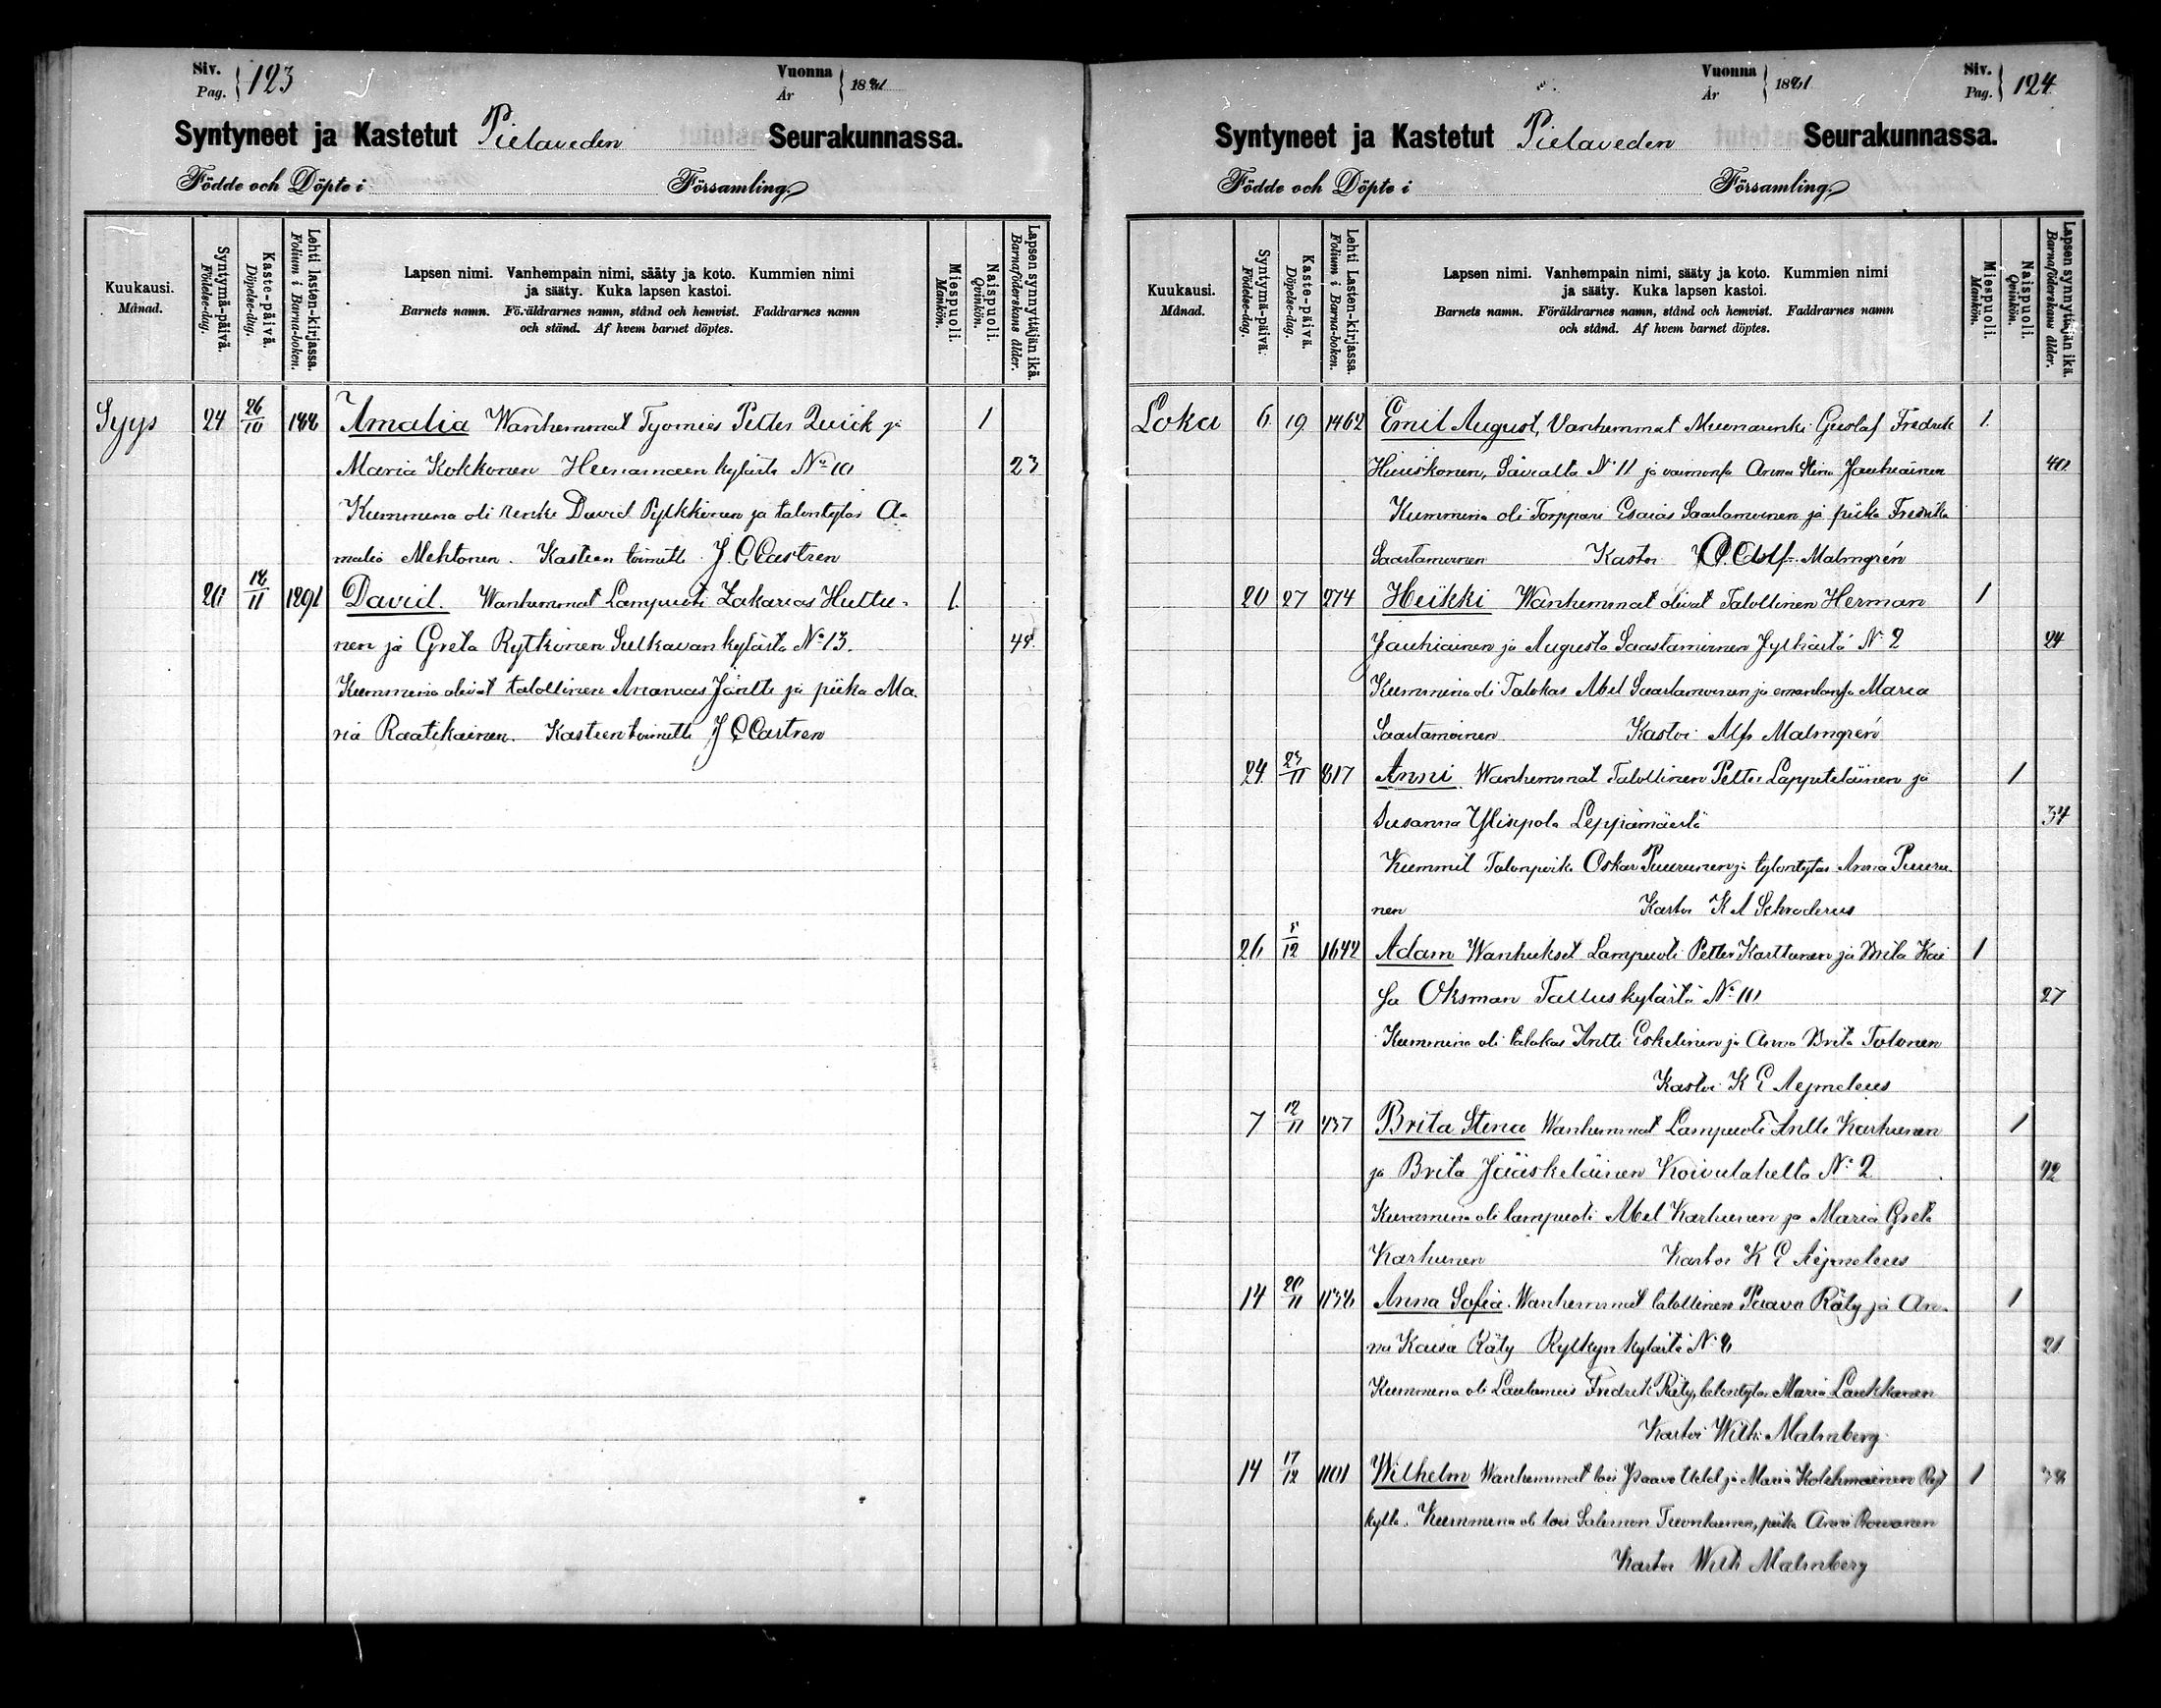 Siv. Pag. 123
Vuonna År 1881
Syntyneet ja Kastetut Pielaveden Seurakunnassa.
Födde och Döpte i Församling.
Kuukausi. Månad.
Syntymä-päivä. Födelse-dag.
Kaste-päivä. Döpelse-dag.
Lehti lasten-kirjassa. Folium i Barna-boken.
Lapsen nimi. Vanhempain nimi, sääty ja koto. Kummien nimi
ja sääty. Kuka lapsen kastoi.
Barnets namn. Föräldrarnes namn, stånd och hemvist. Faddrarnes namn
och stånd. Af hvem barnet döptes.
Miespuoli. Mankön.
Naispuoli. Qvinkön.
Lapsen synnyttäjän ikä. Barnaföderskans ålder.
Syys 24 26/10 188 Amalia Wanhemmat Tyomies Petter Quick ja 1
Maria Kokkonen Heinamaen kylästä No 10 23
Kummina oli renki David Pylkkönen ja talontytär A-
malia Mehtonen. Kasteen toimitti J. C Castren
20 18/11 1291 David. Wanhemmat Lampuoti Zakarias Huttu- 1.
nen ja Greta Rytkönen Sulkavan kylästä No 13. 44
Kummina olivat talollinen Ananias Jäntti ja piika Ma-
ria Raatikainen. Kasteen toimitti J C Castren
Vuonna År 1881
Siv. Pag. 124
Syntyneet ja Kastetut Pielaveden Seurakunnassa.
Födde och Döpte i Församling.
Kuukausi. Månad.
Syntymä-päivä. Födelse-dag.
Kaste-päivä. Döpelse-dag.
Lehti Lasten-kirjassa. Folium i Barna-boken.
Lapsen nimi. Vanhempain nimi, sääty ja koto. Kummien nimi
ja sääty. Kuka lapsen kastoi.
Barnets namn. Föräldrarnes namn, stånd och hemvist. Faddrarnes namn
och stånd. Af hvem barnet döptes.
Miespuoli. Mankön.
Naispuoli. Qvinkön.
Lapsen synnyttäjän ikä. Barnaföderskans ålder.
Loka 6 19 1462 Emil August, Vanhemmat Muonarenki Gustaf Fredrik 1.
Hiiiskonen, Säviältä No 11 ja vaimonsa Anna Stina Jauhiainen 40
Kummina oli Torppari Esaias Saastamoinen ja piika Fredrika
Saastamoinen Kastoi Adolf Malmgrén
20 27 274 Heikki Wanhemmat olivat Talollinen Herman 1
Jauhiainen ja Augusta Saastamoinen Jylhästä No 2 24
Kummina oli Talokas Abel Saastamoinen ja emäntänsä Maria
Saastamoinen Kastoi Alf Malmgrén
24 23/11 817 Anni Wanhemmat Talollinen Petter Lappeteläinen ja 1
Susanna Ylispola Leppämäestä 34
Kummit Talonpoika Oskar Puurunen ja talontytär Anna Puuru-
nen Kastoi K A Schroderus
26 8/12 1642 Adam Wanhukset Lampuoti Petter Karttunen ja Brita Kai 1
sa Oksman Tallus kylästä No 10 27
Kummina oli talokas Antti Eskelinen ja Anna Brita Tolonen
Kastoi K E Aejmeleus
7 12/11 437 Brita Stina Wanhemmat Lampuoti Antti Karhunen 1
ja Brita Jääskeläinen Koivulahelta No 2 42
Kummina oli lampuoti Abel Karhunen ja Maria Greta
Karhunen Kastoi K E Aejmeleus
14 20/11 1138 Anna Sofia. Wanhemmat talollinen Paavo Räty ja An- 1
na Kaisa Räty Rytkyn kylästä No 8 21
Kummina oli Lautamies Fredrik Räty, talontytär Maria Laukkanen
Kastoi Wilh. Malmberg
14 17/12 1101 Wilhelm Wanhemmat loi Paavo ja Maria Kolehmainen 1 38
kyltä. Kummina oli loi Salomon, piika Anni Rouvanen
Kastoi Wilh Malmberg